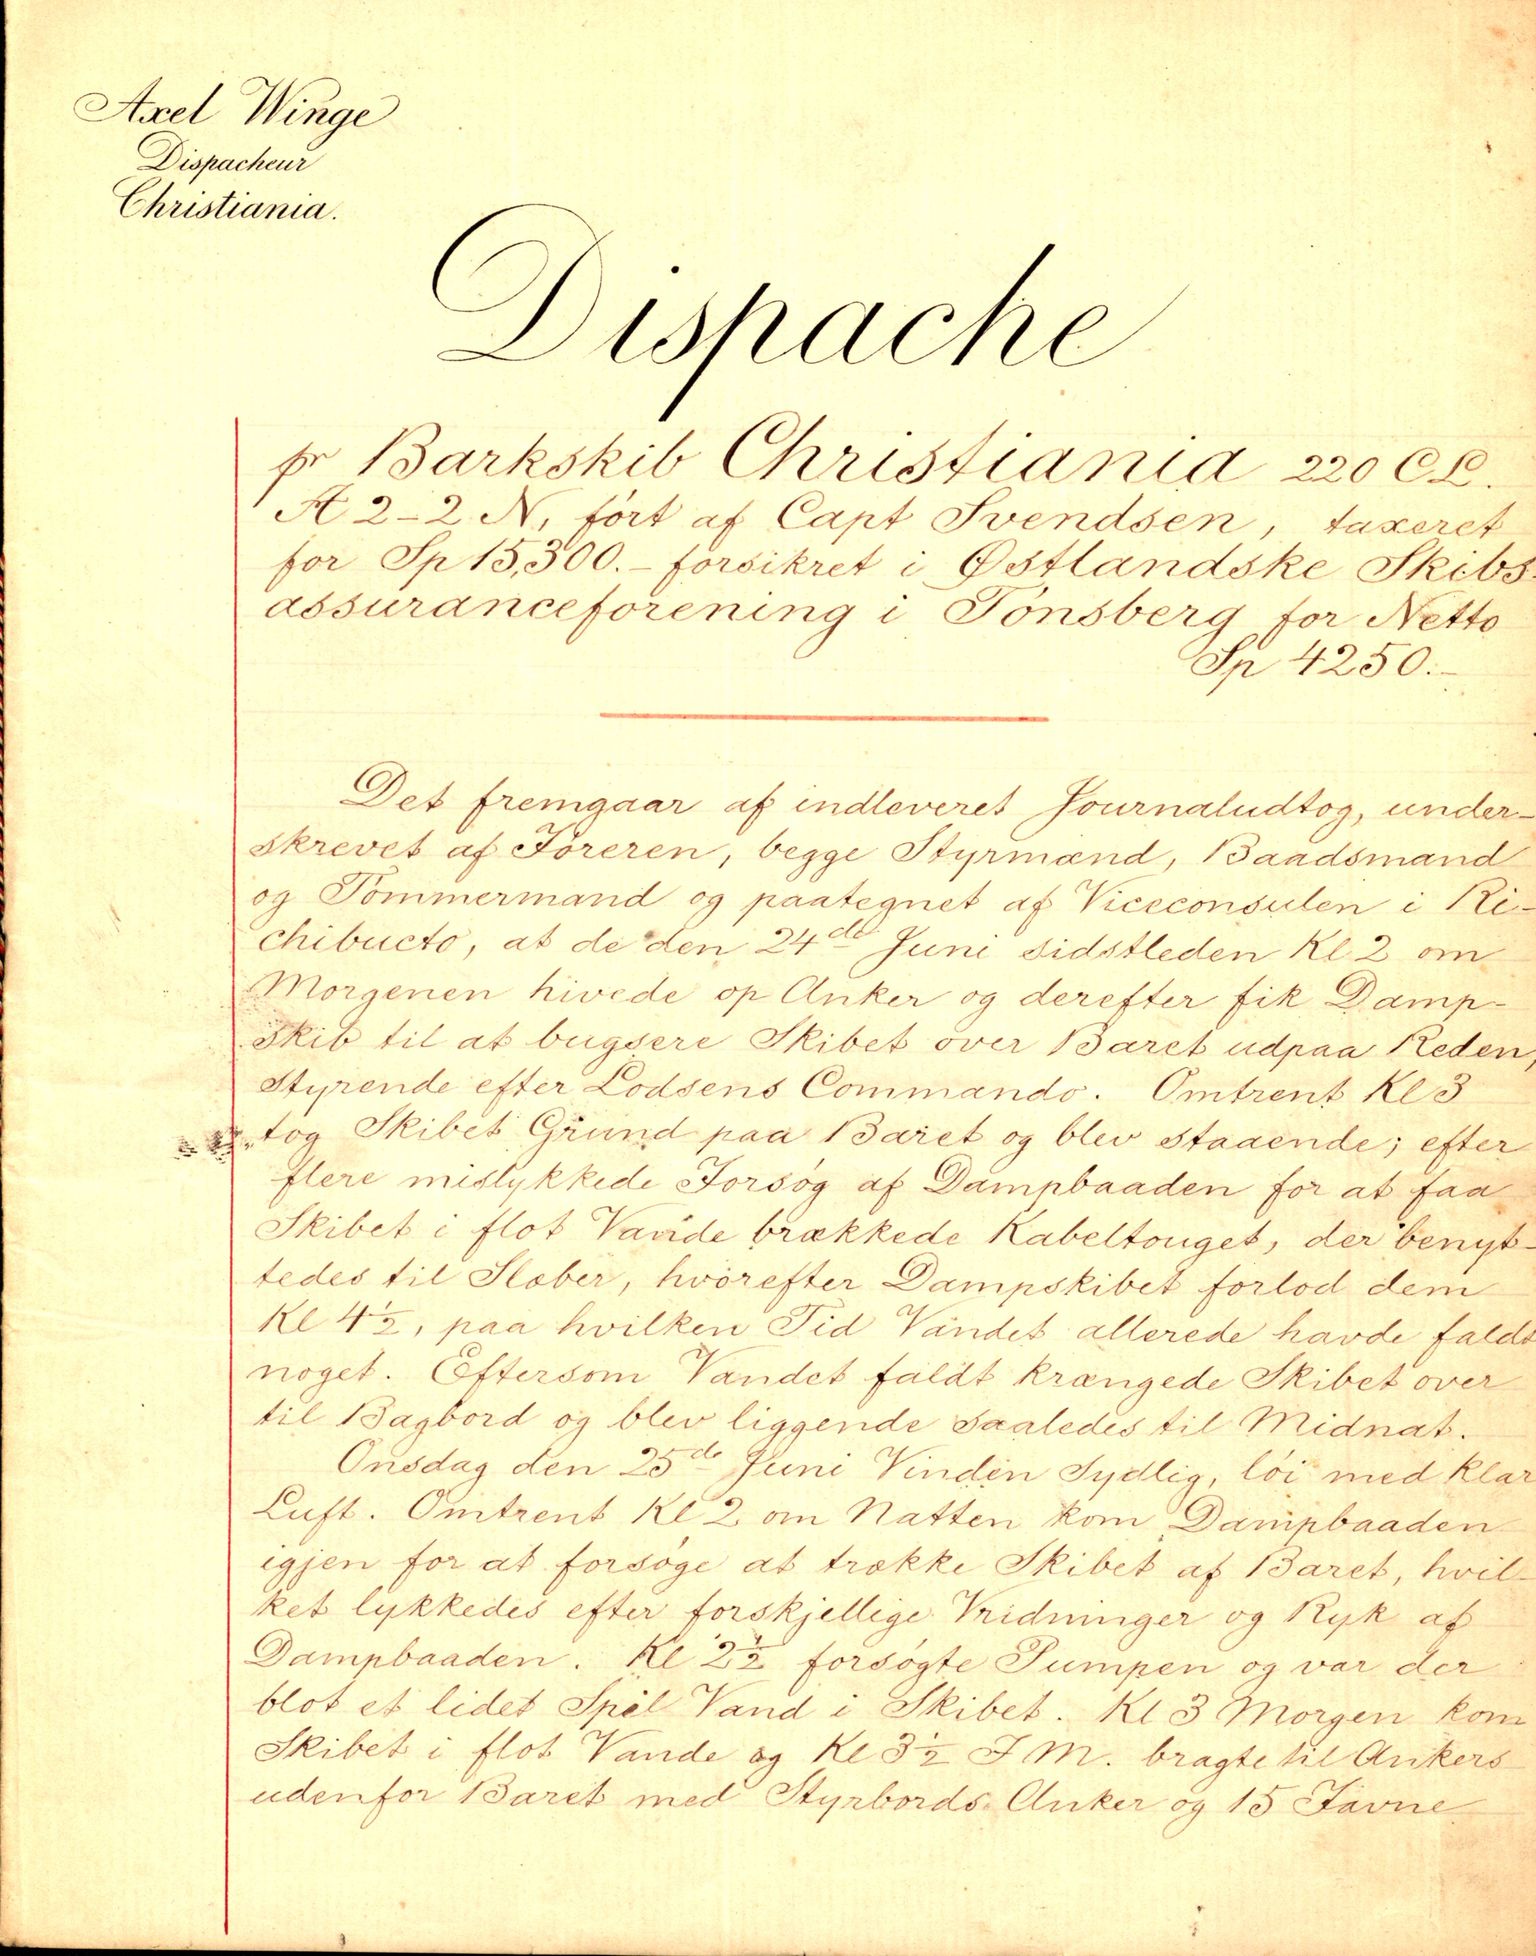 Axel Winge
Dispacheur
Christiania.
Dispache
pr Barkskib Christiania 220 CL.
A 2-2 N, ført af Capt Svendsen, taxeret
for Sp 15,300.- forsikret i Østlandske Skibs-
assuranceforening i Tønsberg for Netto
Sp 4250.-
Det fremgaar af indleveret Journaludtog, under-
skrevet af Føreren, begge Styrmænd, Baadsmand
og Tømmermand og paategnet af Viceconsulen i Ri-
chibucto, at de den 24de Juni sidstleden Kl 2 om
Morgenen hivede op Anker og derefter fik Damp-
skib til at bugsere Skibet over Baret udpaa Reden,
styrende efter Lodsens Commando. Omtrent Kl 3
tog Skibet Grund paa Baret og blev staaende; efter
flere mislykkede Forsøg af Dampbaaden for at faa
Skibet i flot Vande brækkede Kabeltouget, der benyt-
tedes til Slæber, hvorefter Dampskibet forlod dem
Kl 4½, paa hvilken Tid Vandet allerede havde faldt
noget. Eftersom Vandet faldt krængede Skibet over
til Bagbord og blev liggende saaledes til Midnat.
Onsdag den 25de Juni Vinden Sydlig, løi med klar
Luft. Omtrent Kl 2 om Natten kom Dampbaaden
igjen for at forsøge at trække Skibet af Baret, hvil-
ket lykkedes efter forskjellige Vridninger og Ryk af
Dampbaaden. Kl 2½ forsøgte Pumpen og var der
blot et lidet Spil Vand i Skibet. Kl 3 Morgen kom
Skibet i flot Vande og Kl 3½ F M. bragte til Ankers
udenfor Baret med Styrbords Anker og 15 Favne